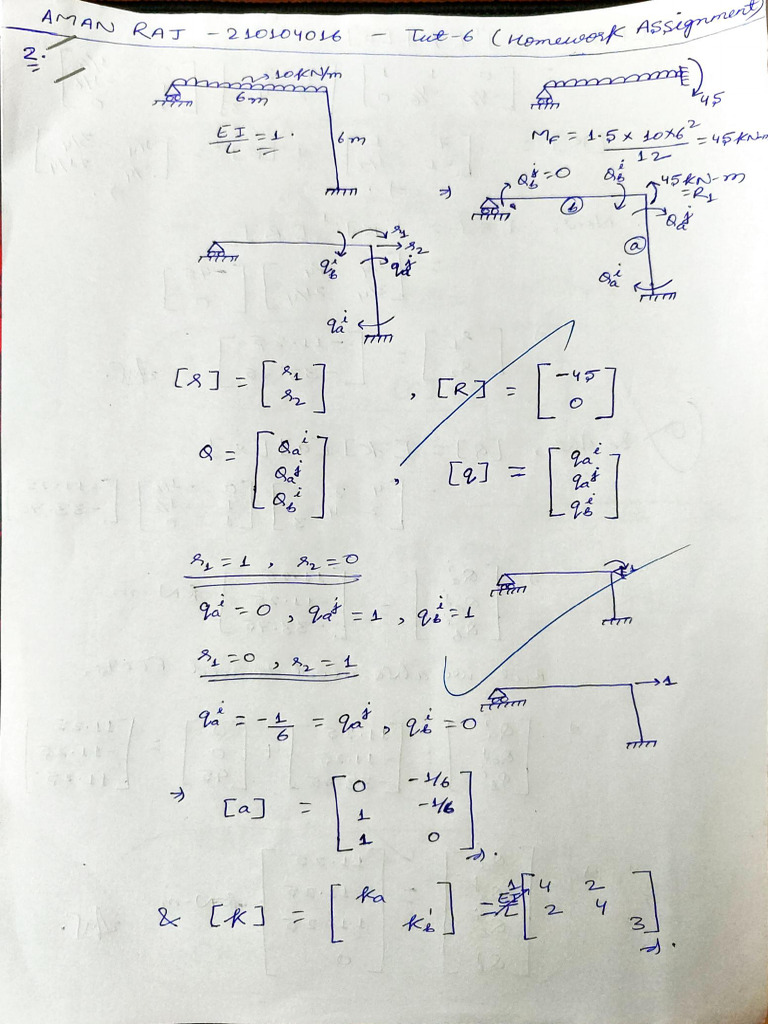 AMAN RAJ - 210104016 - Tut-6 (Homework Assignment)
2.
10 KN/m
6m
EI/L = 1.
6m
45
M_F = 1.5 x 10x6²/12 = 45 KN-m
⇒
Q_b^j = 0
Q_b^i
45 KN-m = R_1
a
b
Q_a^j
a
Q_a^i
r_1
r_2
q_b^i
q_a^j
q_a^i
[r] = [r_1 r_2] , [R] = [-45 0]
Q = [Q_a^i Q_a^j Q_b^i] , [q] = [q_a^i q_a^j q_b^i]
r_1 = 1 , r_2 = 0
q_a^i = 0 , q_a^j = 1 , q_b^i = 1
r_1 = 0 , r_2 = 1
1
q_a^i = -1/6 = q_a^j , q_b^i = 0
⇒ [a] = [0 -1/6
1 -1/6
1 0]
& [K] = [k_a k_b'] = 1 [4 2
2 4
3]